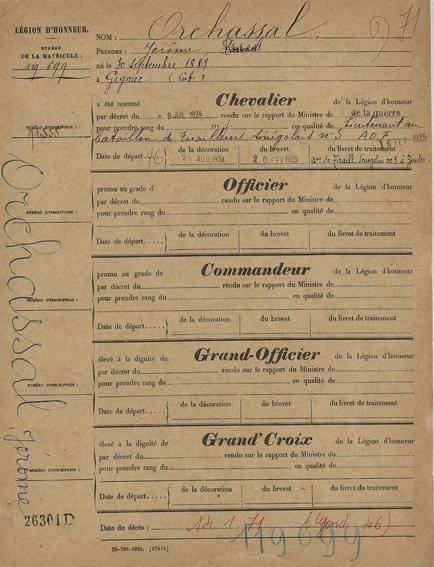 LÉGION D'HONNEUR.
NUMÉRO
DE LA MATRICULE:
119.699
NOM: Orchassal. 71
PRÉNOMS: Jérôme,
né le 30 Septembre 1889
à Gignac (Lot)
a été nommé Chevalier de la Légion d'honneur
par décret du 9 JUIL 1924 rendu sur le rapport du Ministre de la guerre
pour prendre rang en qualité de Lieutenant au
NUMÉRO D'INSCRIPTION:
bataillon de Tirailleurs Sénégalais n° 3 A.O.F.
Date de départ de la décoration du brevet du livret de traitement
21 AOU 1924 20 FEV 1925 FEV 1925
promu au grade de Officier de la Légion d'honneur
par décret du rendu sur le rapport du Ministre de
pour prendre rang en qualité de
NUMÉRO D'INSCRIPTION:
Date de départ..... de la décoration du brevet du livret de traitement
promu au grade de Commandeur de la Légion d'honneur
par décret du rendu sur le rapport du Ministre de
pour prendre rang en qualité de
NUMÉRO D'INSCRIPTION:
Date de départ..... de la décoration du brevet du livret de traitement
élevé à la dignité de Grand-Officier de la Légion d'honneur
par décret du rendu sur le rapport du Ministre de
pour prendre rang en qualité de
NUMÉRO D'INSCRIPTION:
Date de départ..... de la décoration du brevet du livret de traitement
élevé à la dignité de Grand'Croix de la Légion d'honneur
par décret du rendu sur le rapport du Ministre de
pour prendre rang en qualité de
NUMÉRO D'INSCRIPTION:
Date de départ..... de la décoration du brevet du livret de traitement
Orchassal, Jérôme
26301D
Date du décès: 1 71
119699
35-708-1924. [37414]